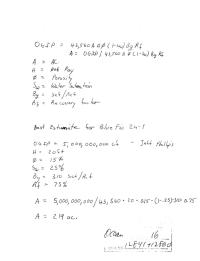 OGIP = 43,560 A H Ø (1-Sw) Bg Rf
A = OGIP / 43,560 H Ø (1-Sw) Bg Rf
A = AC
H = Net Pay
Ø = Porosity
Sw = Water Saturation
Bg = Scf/Rcf
Rf = Recovery factor
Best Estimate for Blue Fin 24-1
OGIP = 5,000,000,000 cf - Phillips
H = 20ft
Ø = 15%
Sw = 25%
Bg = 310 scf/Rcf
Rf = 75%
A = 5,000,000,000 / 43,560 · 20 · .15 · (1-.25) · 310 · 0.75
A = 219 ac.
16